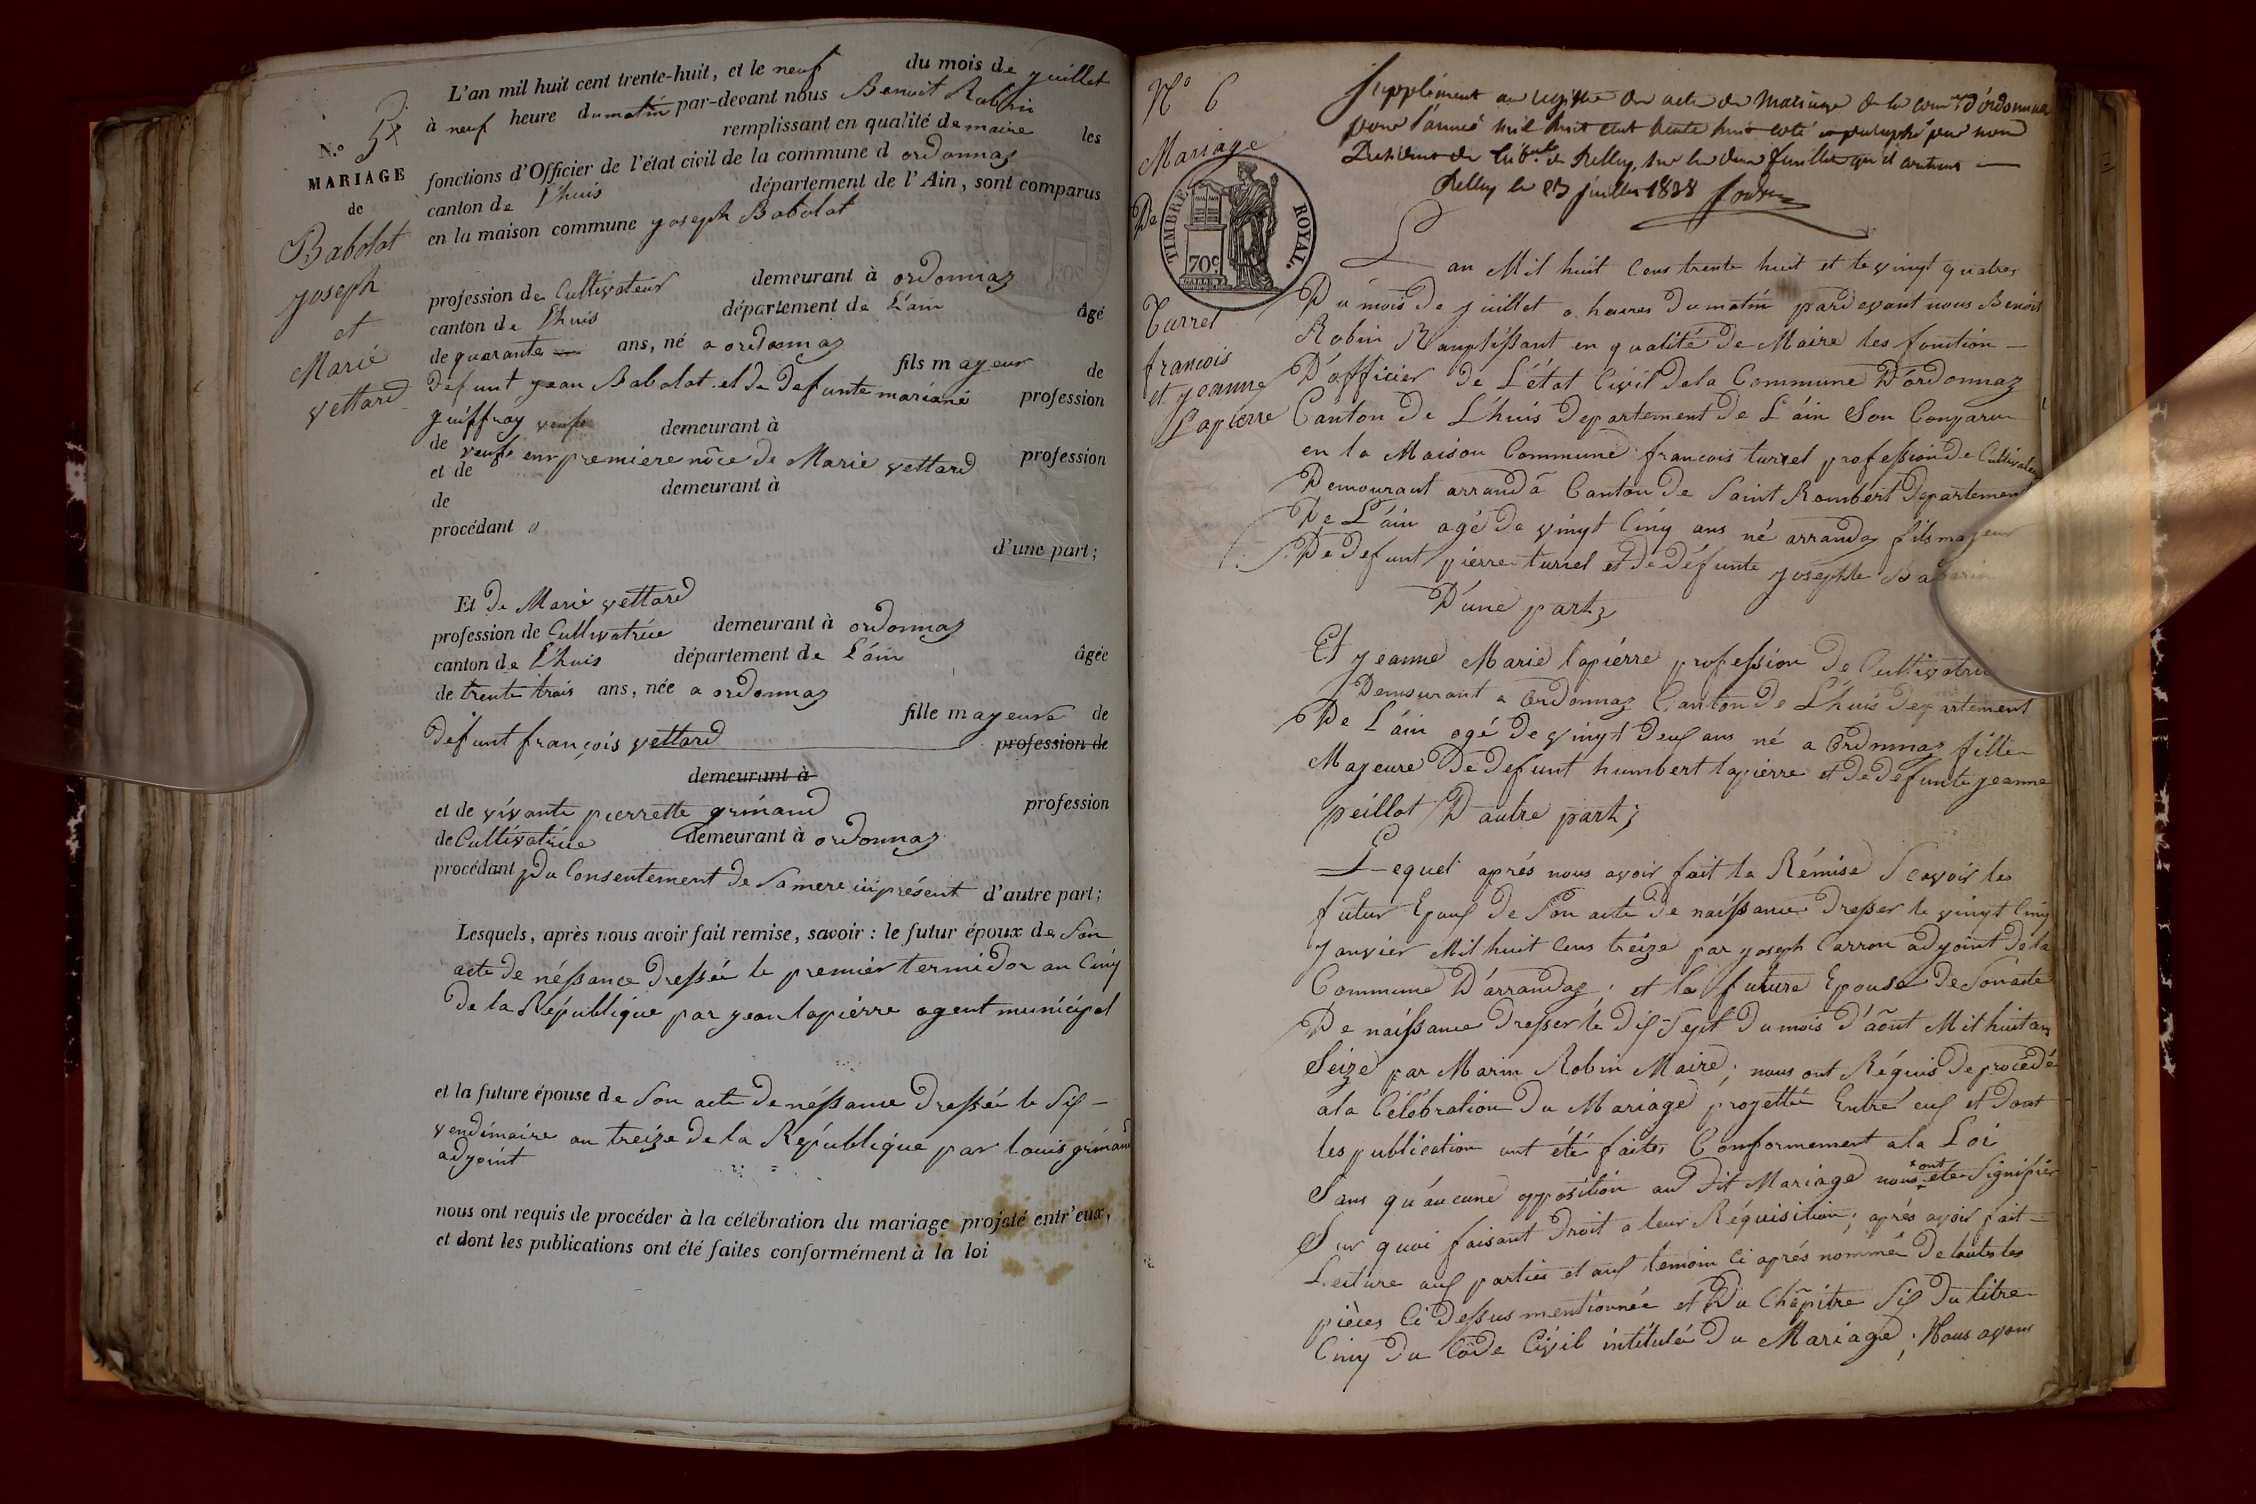 N.º 5
MARIAGE
de
Babolat
joseph
et
Marie
vettard
L'an mil huit cent trente-huit, et le neuf du mois de juillet
à neuf heure du matin par-devant nous Benoit Robin
remplissant en qualité de maire les
fonctions d'Officier de l'état civil de la commune d ordonnaz
canton de l'huis département de l'Ain, sont comparus
en la maison commune joseph Babolat
profession de Cultivateur demeurant à ordonnaz
canton de l'huis département de L'ain âgé
de quarante ans, né a ordonnaz
fils mayeur de
defunt jean Babolat et de defunte mariané profession
guiffray
de demeurant à
veuf en premiere nôce de Marie vettard profession
et de
de demeurant à
procédant
d'une part;
Et de Marie vettard
profession de Cultivatrice demeurant à ordonnaz
canton de L'huis département de L'áin âgée
de trente trois ans, née a ordonnaz
fille mayeure de
defunt françois vettard profession de
demeurant à
et de vivante pierrette grimand profession
de Cultivatrice demeurant à ordonnaz
procédant du Consentement de Sa mere ici présent d'autre part;
Lesquels, après nous avoir fait remise, savoir : le futur époux de Son
acte de néssance dressée le premier termidor an Cinq
de la République par jean lapiérre agent municipal
et la future épouse de Son acte de néssance dressée le Six
vendimaire an treize de la République par louis grimand
adjoint
nous ont requis de procéder à la célébration du mariage projeté entr'eux,
et dont les publications ont été faites conformément à la loi
Nº 6
Mariage
De
TIMBRE ROYAL.
70c.
Turrel
francois
et jeanne
Lapierre
Supplément au registre des actes de Mariage de la com.ne d'ordonnaz
pour l'année mil huit cent trente huit coté et paraphé par nous
Président du tribal de Belley, sur les deux feuilles qu'il contient
Belley le 23 juillet 1838
L'an Mil huit Cens trente huit et le vingt quatre
Du mois de juillet a heures du matin pardevant nous Benoit
Robin Ramplissant en qualité de Maire les fonction
D'officier de L'état Civil de la Commune D'ordonnaz
Canton de L'huis Departement de L'áin Son Conparu
en la Maison Commune francois turrel profession de Cultivateur
Demourant arrandâ Canton de Saint Rambert Departement
De L'áin agé de vingt Cinq ans né arrandaz fils mayeur
De defunt pierre turrel et de défunte josephte
D'une part;
Et jeanne Marie lapiérre profession de Cultivatrice
Demourant a Ordonnaz Canton de L'huis Departement
De L'áin agé de vingt deux ans né a Ordonnaz fille
Mayeure de defunt humbert lapiérre et de défunte jeanne
peillot D'autre part;
Lequel aprés nous avoir fait la Rémise Scavoir les
futur Epoux de Son acte de naissance dresser le vingt Cinq
janvier Mil huit Cens treize par joseph Carron adjoint de la
Commune D'arrandaz; et la future Epouse de Son acte
De naissance dresser le dix Sept du mois d'août Mil huit cens
Seize par Marin Robin Maire; nous ont Réquis de procédé
a la Célébration du Mariage projetté Entré eux et dont
les publication ont été faites Conformement a la Loi
Sans qu'áucune opposition au dit Mariage nous ont été Signifiér
Sur quoi faisant droit a leur Réquisition; aprés avoir fait
Lecture aux parties et aux temoin Ci aprés nommée De toutes les
pièces Ci dessus mentionnée et Du Châpitre Six du titre
Cinq du Code Civil intitulée du Mariage; Nous avons